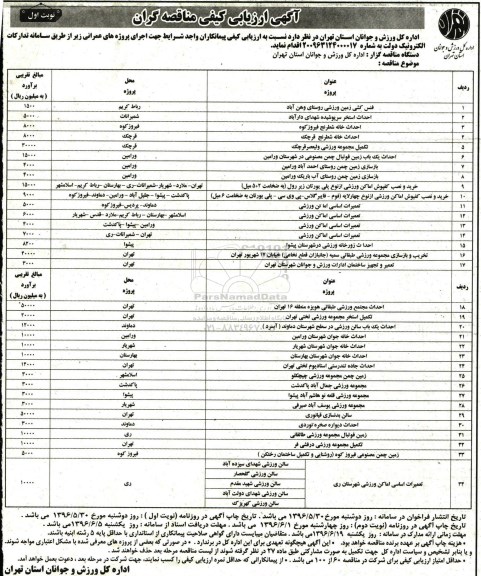 نوبت اول
آگهی ارزیابی کیفی مناقصه گران
اداره کل ورزش و جوانان استان تهران در نظر دارد نسبت به ارزیابی کیفی پیمانکاران واجد شرایط جهت اجرای پروژه های عمرانی زیر از طریق سامانه تدارکات
الکترونیک دولت به شماره ۲۰۰۹۶۳۱۲۴۰۰۰۰۱۷ اقدام نماید.
دستگاه مناقصه گزار : اداره کل ورزش و جوانان استان تهران
موضوع مناقصه :
ردیف عنوان پروژه محل پروژه مبالغ تقریبی برآورد (به میلیون ریال)
۱ فنس کشی زمین ورزشی روستای وهن آباد رباط کریم ۱۵۰۰
۲ احداث استخر سرپوشیده شهدای دارآباد شمیرانات ۵۰۰۰
۳ احداث خانه شطرنج فیروزکوه فیروزکوه ۸۰۰۰
۴ احداث خانه شطرنج قرچک قرچک ۸۰۰۰
۵ تکمیل مجموعه ورزشی ولیعصر قرچک قرچک ۳۰۰۰۰
۶ احداث یک باب زمین فوتبال چمن مصنوعی در شهرستان ورامین ورامین ۱۵۰۰۰
۷ بازسازی زمین چمن روستای احمد آباد ورامین ورامین ۴۰۰۰
۸ بازسازی زمین چمن روستای آب باریک ورامین ورامین ۴۰۰۰
۹ خرید و نصب کفپوش اماکن ورزشی ازنوع پلی یورتان زیر رول (به ضخامت ۲+۵ میل) تهران - ملارد - شهریار - شمیرانات - ری - بهارستان - رباط کریم - اسلامشهر ۱۵۰۰۰
۱۰ خرید و نصب کفپوش اماکن ورزشی ازنوع چهارلایه (فوم - فایبرگلاس - پی وی سی - پلی یورتان به ضخامت ۶ میل) پاکدشت - پیشوا - جلیل آباد - ورامین - دماوند - فیروزکوه ۹۰۰۰
۱۱ تعمیرات اساسی اماکن ورزشی دماوند - پردیس - فیروزکوه ۵۰۰۰
۱۲ تعمیرات اساسی اماکن ورزشی اسلامشهر - بهارستان - رباط کریم - ملارد - قدس - شهریار ۶۰۰۰
۱۳ تعمیرات اساسی اماکن ورزشی ورامین - پیشوا - پاکدشت ۴۰۰۰
۱۴ تعمیرات اساسی اماکن ورزشی تهران - شمیرانات - ری ۷۰۰۰
۱۵ احداث زورخانه ورزشی درشهرستان پیشوا پیشوا ۸۴۰۰
۱۶ تخریب و بازسازی مجموعه ورزشی طبقاتی سمیه (جانبازان قطع نخاعی) خیابان ۱۷ شهریور تهران تهران ۲۰۰۰۰
۱۷ تعمیر و تجهیز ساختمان ادارات ورزش و جوانان شهرستان تهران تهران ۳۰۰۰
ردیف عنوان پروژه محل پروژه مبالغ تقریبی برآورد (به میلیون ریال)
۱۸ احداث مجتمع ورزشی طبقاتی هویزه منطقه ۱۶ تهران تهران ۵۰۰۰۰
۱۹ تکمیل استخر مجموعه ورزشی تختی تهران تهران ۲۰۰۰۰
۲۰ احداث یک باب سالن ورزشی در سطح شهرستان دماوند (آبسرد) دماوند ۱۲۰۰۰
۲۱ احداث خانه جوان شهرستان ورامین ورامین ۱۰۰۰۰
۲۲ احداث خانه جوان شهرستان شهریار شهریار ۱۰۰۰۰
۲۳ احداث خانه جوان شهرستان بهارستان بهارستان ۱۰۰۰۰
۲۴ احداث جاده تندرستی استادیوم تختی تهران تهران ۱۴۰۰۰
۲۵ زمین چمن مجموعه ورزشی چیچکلو اسلامشهر ۴۰۰۰
۲۶ مجموعه ورزشی جمال آباد پاکدشت پاکدشت ۳۰۰۰
۲۷ مجموعه ورزشی قلعه نو هاشم آباد پیشوا پیشوا ۳۰۰۰
۲۸ مجموعه ورزشی یوسف آباد صیرفی شهریار ۳۰۰۰
۲۹ سالن بدنسازی قیانوری تهران ۵۰۰۰۰
۳۰ احداث دیواره صخره نوردی دماوند ۳۰۰۰
۳۱ زمین فوتبال مجموعه ورزشی طالقانی ری ۱۰۰۰۰
۳۲ تکمیل مجموعه ورزشی درفشی فر تهران ۱۰۰۰۰
۳۳ زمین چمن مصنوعی فیروز کوه (روشنایی و تکمیل ساختمان رختکن) فیروز کوه ۵۰۰۰
۳۴ تعمیرات اساسی اماکن ورزشی شهرستان ری ری ۱۰۰۰۰
سالن ورزشی شهدای سیزده آباد
سالن ورزشی گلحصار
سالن ورزشی شهید مقدم
سالن ورزشی شهدای دولت آباد
سالن ورزشی کهریزک
تاریخ انتشار فراخوان در سامانه : روز دوشنبه مورخ ۱۳۹۶/۵/۳۰ می باشد . تاریخ چاپ آگهی در روزنامه (نوبت اول ) : روز دوشنبه مورخ ۱۳۹۶/۵/۳۰ می باشد .
تاریخ چاپ آگهی در روزنامه (نوبت دوم ) : روز چهارشنبه مورخ ۱۳۹۶/۶/۱ می باشد . مهلت دریافت اسناد از سامانه : روز یکشنبه ۱۳۹۶/۶/۵ می باشد .
مهلت زمانی ارائه مدارک در سامانه : روز یکشنبه مورخ ۱۳۹۶/۶/۱۹ می باشد . متقاضیان میبایست دارای گواهی صلاحیت پیمانکاری از استانداری یا حداقل پایه ۵ رشته ابنیه باشند.
- هزینه چاپ آگهی بر عهده برنده مناقصه خواهد بود. - این آگهی هیچگونه تعهدی برای این اداره کل در بر ندارد. - در صورتی که بعضی از پروژه های معرفی شده با مشکل اعتباری مواجه شوند،
و یا بنابر تشخیص و سیاست اداره کل جهت تکمیل به صورت مشارکتی طبق ماده ۲۷ در نظر گرفته شوند از لیست مناقصه مرحله بعد حذف خواهند شد .
- حداقل امتیاز ارزیابی کیفی برای شرکت در مناقصه ۶۰ از ۱۰۰ می باشد . - از پیمانکارانی که حداقل نمره ارزیابی کیفی را کسب نمایند، جهت شرکت در مرحله بعد ، دعوت بعمل خواهد آمد.
اداره کل ورزش و جوانان استان تهران
ParsNamadData
۰۲۱-۸۸۳۴۹۶۷۰